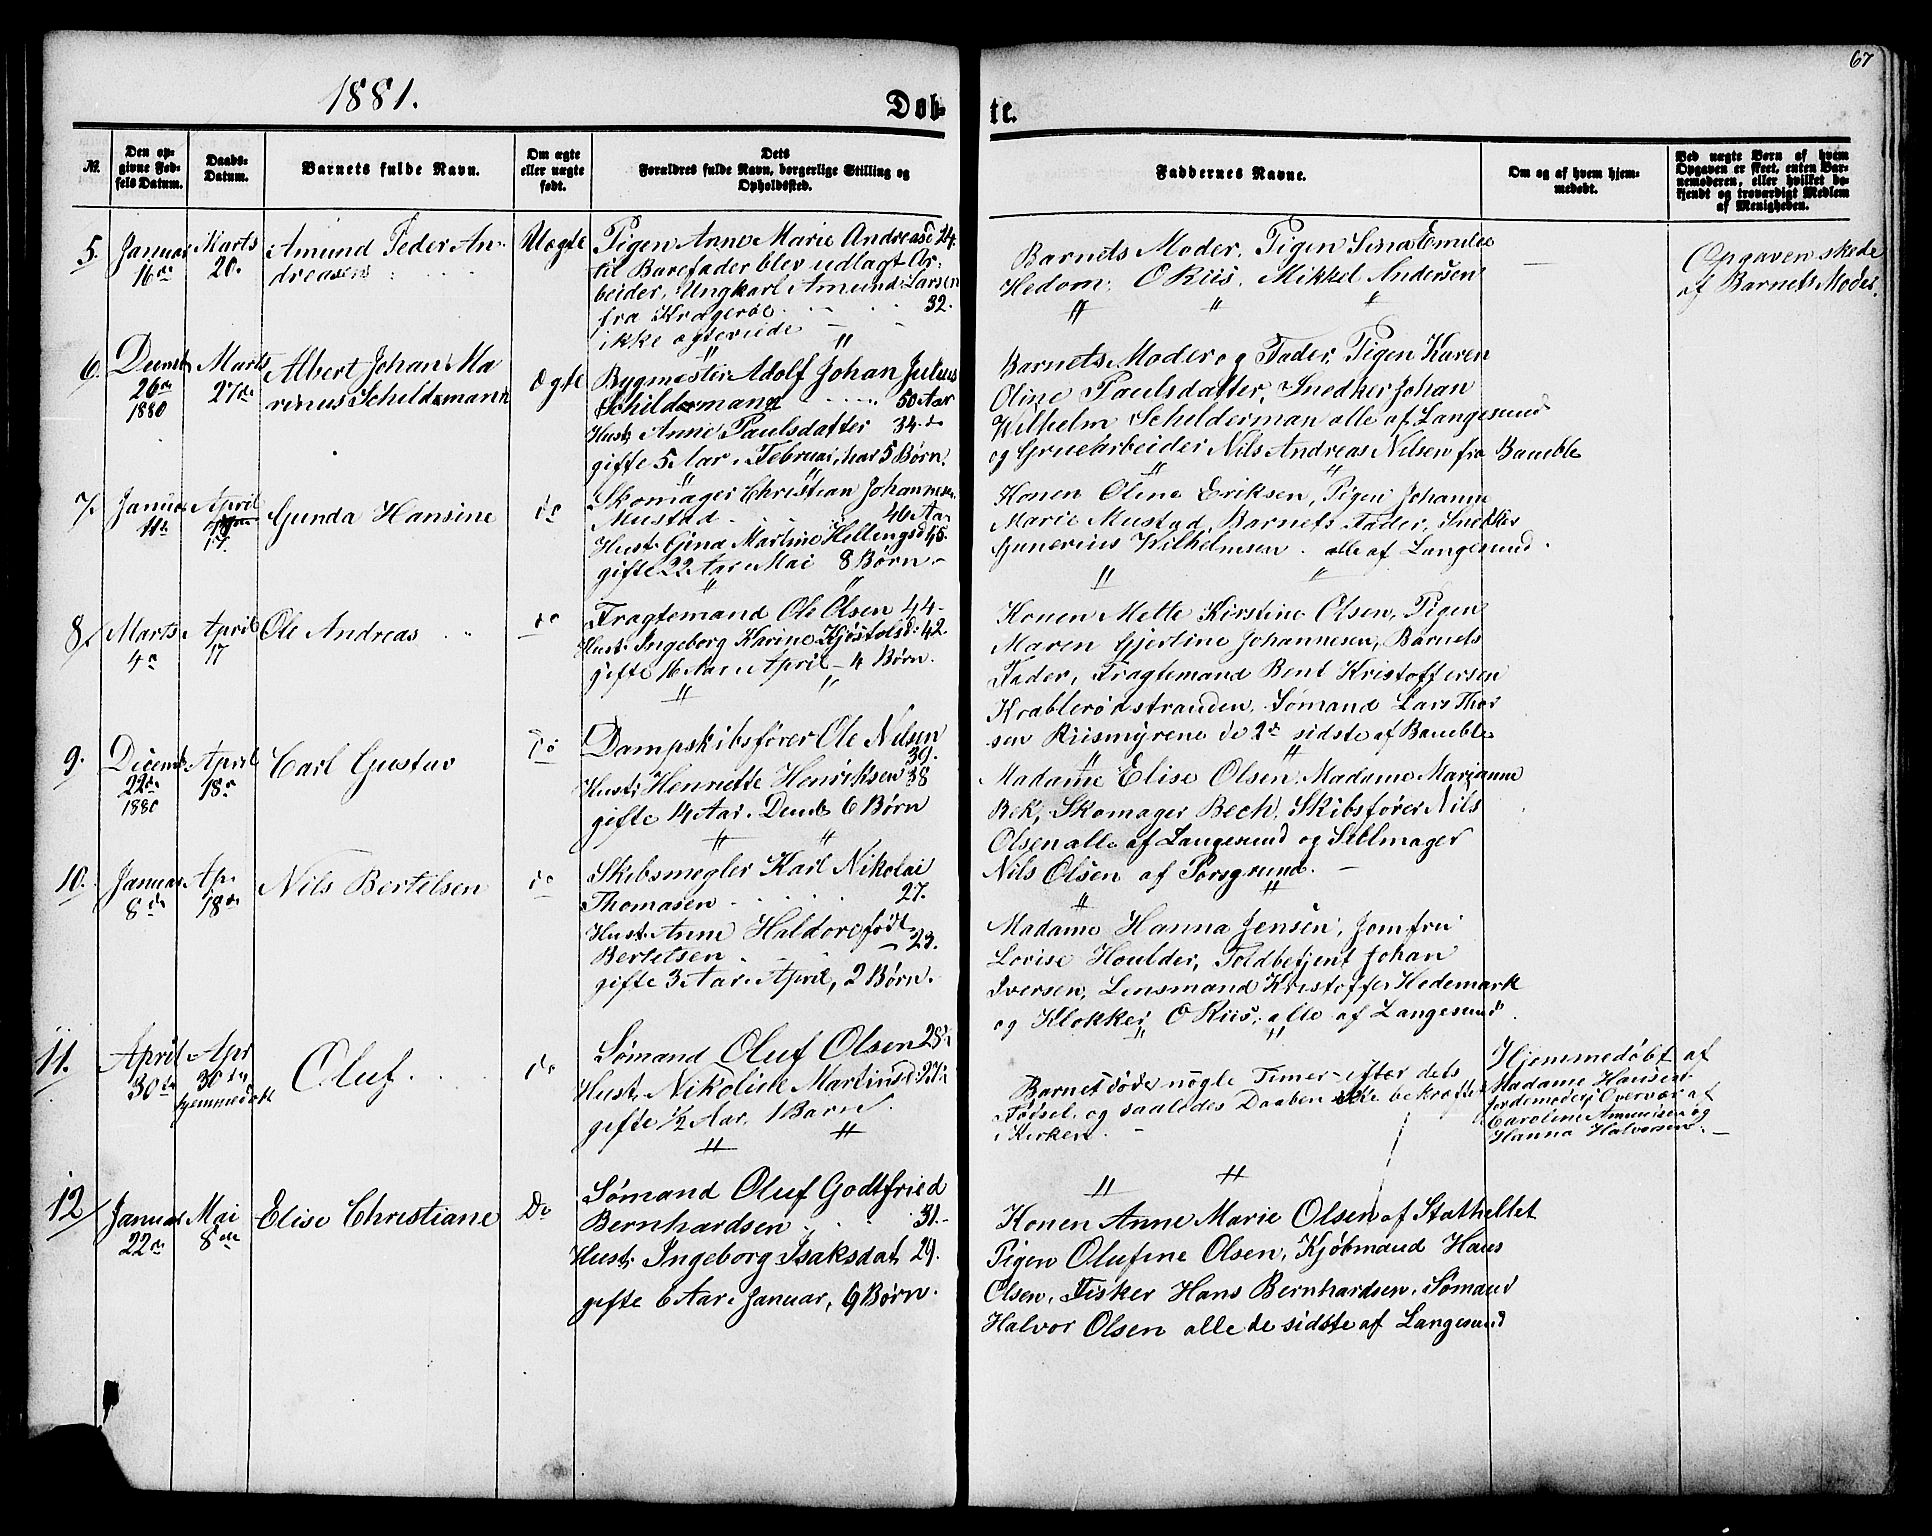 67
1881.
Døb-
te.
№.
Den op-
givne Fød-
sels Datum.
Daabs-
Datum.
Barnets fulde Navn.
Om ægte
eller uægte
født.
Dets
Forældres fulde Navn, borgerlige Stilling og
Opholdssted.
Faddernes Navne.
Om og af hvem hjem-
medøbt.
Ved uægte Børn af hvem
Opgaven er skeet, enten Bar-
nemoderen, eller hvilket be-
kjendt og troværdigt Medlem
af Menigheden.
5.
Januar
16de
Marts
20.
Amund Peder An-
dreasen
Uægte
Pigen Anne Marie Andreasd 24.
til Barefader blev udlagt Ar-
beider, Ungkarl Amund Larsen
fra Kragerøe 32.
ikke ægteviede
Barnets Moder, Pigen Sina Emilie
Hedom, O Riis, Mikkel Andersen
Opgaven skede
af Barnets Moder.
6.
Decmb
26de
1880
Marts
27de
Albert Johan Ma
rinus Schildmann
Ægte
Bygmester Adolf Johan Julius
Schildermann 50 Aar
Hust. Anne Paulsdatter 34. do
gifte 5 Aar i Februar, har 5 Børn.
Barnets Moder og Fader, Pigen Karen
Oline Paulsdatter, Snedker Johan
Wilhelm Schelderman alle af Langesund
og Gruearbeider Nils Andreas Nilsen fra Bamble
7.
Januar
11te
April
17.
Gunda Hansine
do
Skomager Christian Johannesen
Mustad 46 Aar
Hust. Gina Martine Hellingsd 45.
gifte 22 Aar i Mai 8 Børn
Konen Oline Eriksen, Pigen Johanne
Marie Mustad, Barnets Fader, Snedker
Gunerius Wilhelmsen alle af Langesund.
8.
Marts
4de
April
17
Ole Andreas
do
Fragtemand Ole Olsen 44
Hust. Ingeborg Karine Kjøstolsd: 42.
gifte 16 Aar i April 4 Børn.
Konen Mette Kirstine Olsen, Pigen
Maren Gjertine Johannesen, Barnets
Fader, Fragtemand Bent Kristoffersen
Krablerødstranden, Sømand Lars Thor
sen Riismyrene de 2de sidste af Bamble
9.
Dicemb
22de
1880
April
18de
Carl Gustav
Do
Dampskibsfører Ole Nilsen
39.
Hust. Henriette Henriksen 38
gifte 14 Aar i Demb 6 Børn
Madame Elise Olsen, Madame Marianne
Bek, Skomager Bech, Skibsfører Nils
Olsen alle af Langesund og Seilmager
Nils Olsen af Porsgrund.
10.
Januar
8de
Apr
18de
Nils Bertelsen
do
Skibsmægler Karl Nikolai
Thomasen 27.
Hust. Anne Haldore født
Bertelsen 23.
gifte 3 Aar i April, 2 Børn.
Madame Hanna Jensen, Jomfru
Lovise Houlder, Toldbetjent Johan
Iversen, Lensmand Kristoffer Hedemark
og Klokker O Riis, alle af Langesund.
11.
April
30te
Apr
30te
hjemmedøbt
Oluf.
do
Sømand Oluf Olsen 23
Hust. Nikoline Martinsd
gifte 1/2 Aar, 1 Barn.
Barnet døde nogle Timer efter dets
Fødsel, og saaledes Daaben ikke bekræftet
i Kirken.
Hjemmedøbt af
Madame Hansen
Jordemoder; Overvær af
Caroline Amundsen og
Hanna Halvorsen.
12
Januar
22de
Mai
8de
Elise Christiane
Do
Sømand Oluf Godtfried
Bernhardsen 31.
Hust. Ingeborg Isaksdat 29.
gifte 6 Aar i Januar, 6 Børn.
Konen Anne Marie Olsen af Stathellet
Pigen Olufine Olsen, Kjøbmand Hans
Olsen, Fisker Hans Bernhardsen, Sømand
Halvor Olsen alle de sidste af Langesund